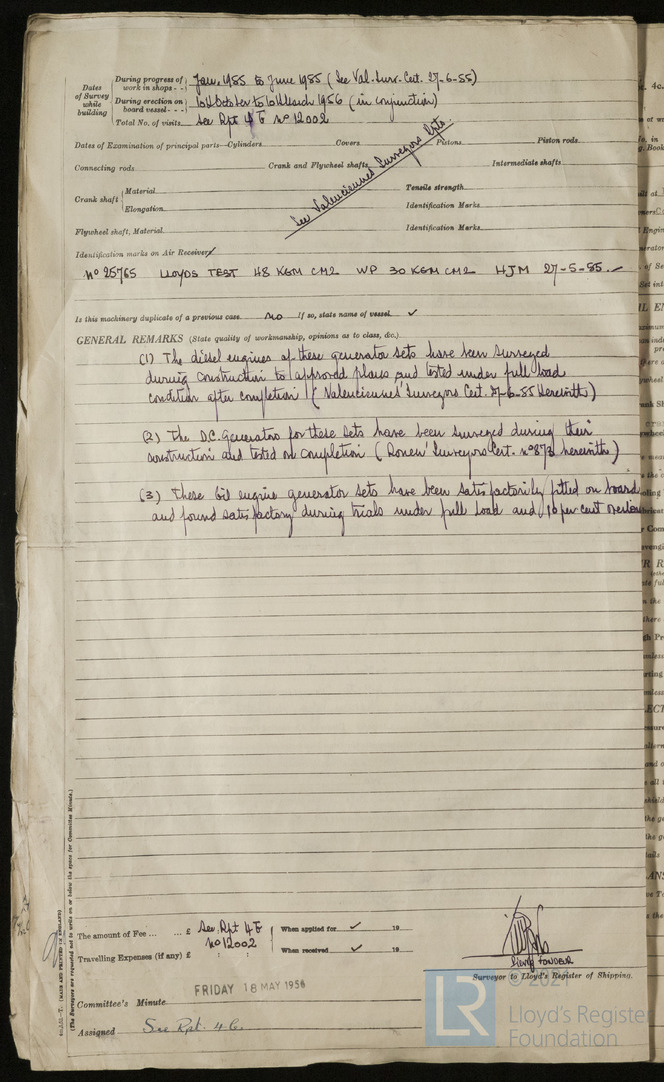 Dates of Survey while building
During progress of work in shops - - Jan. 1955 to June 1955 (See Val. Surv. Cert. 27-6-55)
During erection on board vessel - - 10th October to 10th March 1956 (in conjunction)
Total No. of visits See Rpt 4b No 12002
Dates of Examination of principal parts—Cylinders Covers Pistons Piston rods
Connecting rods Crank and Flywheel shafts Intermediate shafts
See Valenciennes Surveyors Rpts.
Crank shaft Material Tensile strength
Elongation Identification Marks
Flywheel shaft, Material Identification Marks
Identification marks on Air Receiver
No 25765 LLOYDS TEST 48 KGM CM2 WP 30 KGM CM2 HJM 27-5-55.
Is this machinery duplicate of a previous case. No If so, state name of vessel. ✓
GENERAL REMARKS (State quality of workmanship, opinions as to class, &c.)
(1) The diesel engines of these generator sets have been surveyed
during construction to approved plans and tested under full load
condition after completion (Valenciennes' Surveyors Cert. 27-6-55 herewith)
(2) The D.C. Generators for these sets have been surveyed during their
construction and tested on completion (Rouen' Surveyors Cert. no 873 herewith)
(3) These oil engine generator sets have been satisfactorily fitted on board
and found satisfactory during trials under full load and 10 per cent overload
(The Surveyors are requested not to write on or below the space for Committee Minute.)
(MADE AND PRINTED IN ENGLAND)
The amount of Fee ... ... £ See Rpt 4b No 12002 When applied for ✓ 19
Travelling Expenses (if any) £ : : When received ✓ 19
FONDEUR
Surveyor to Lloyd's Register of Shipping.
Committee's Minute FRIDAY 18 MAY 1956
Assigned See Rpt. 4b.
© 2021
LR
Lloyd's Register
Foundation